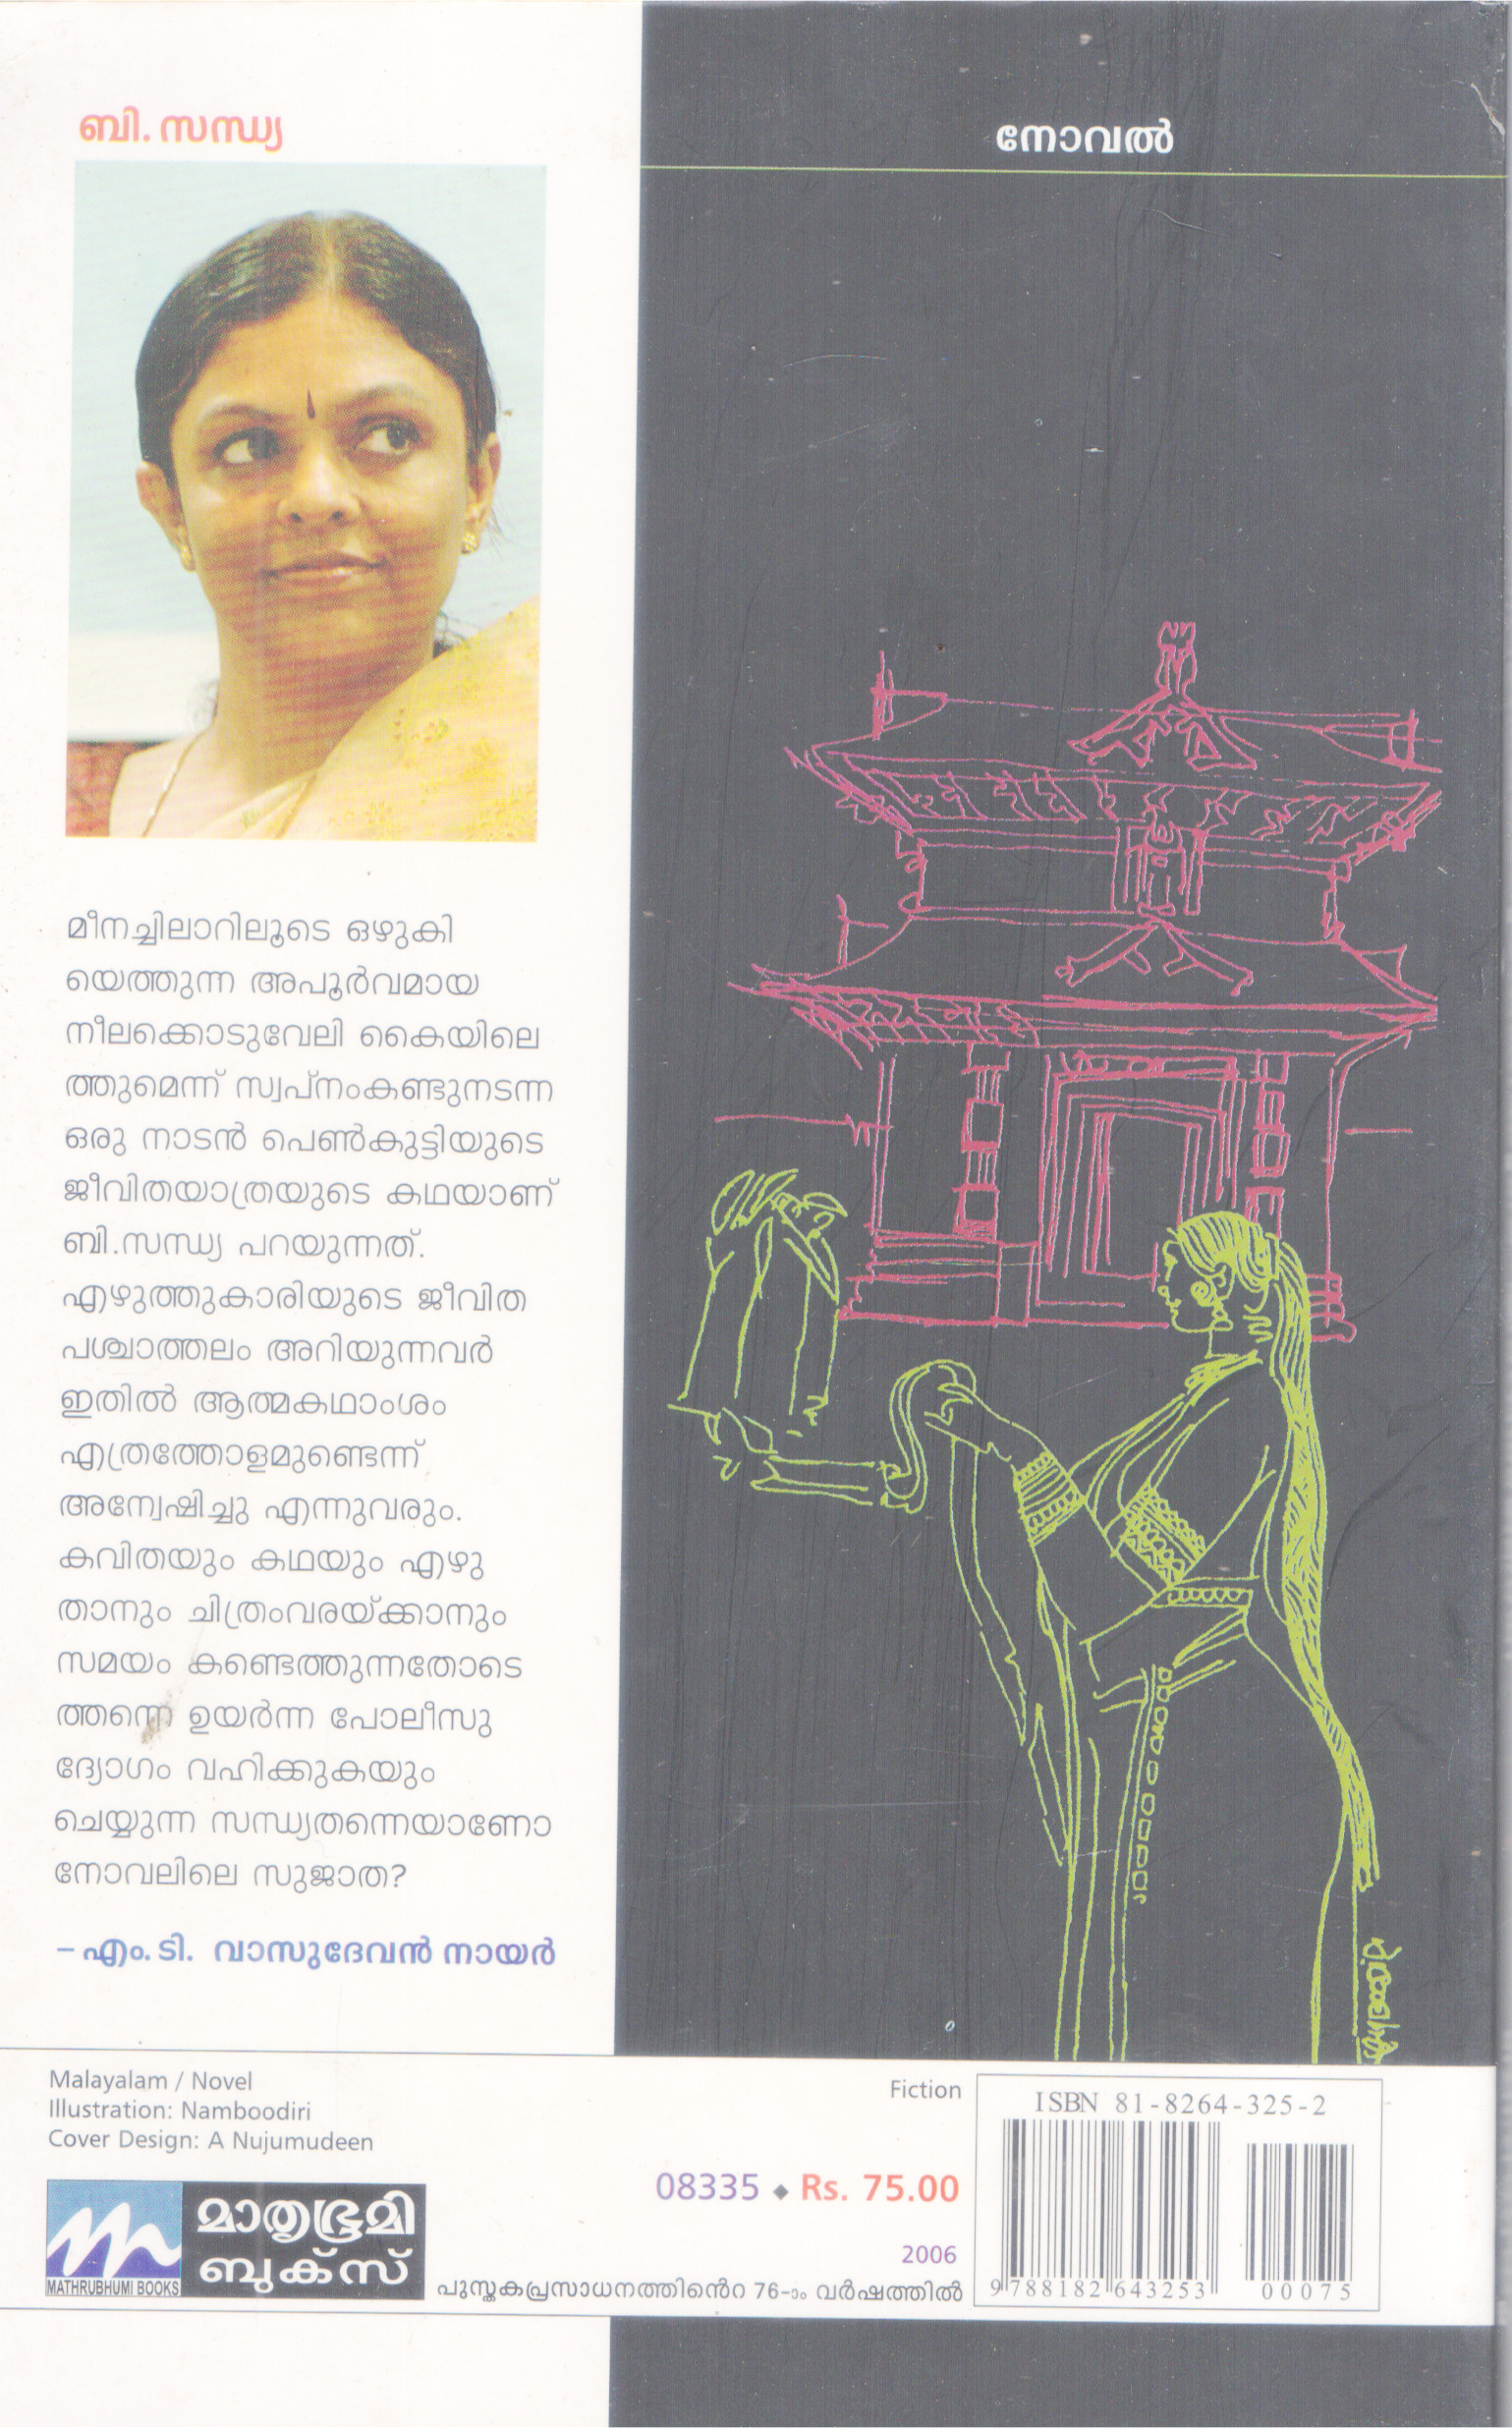 ബി. സന്ധ്യ
നോവൽ
മീനച്ചിലാറിലൂടെ ഒഴുകി
യെത്തുന്ന അപൂർവമായ
നീലക്കൊടുവേലി കൈയിലെ
ത്തുമെന്ന് സ്വപ്നംകണ്ടുനടന്ന
ഒരു നാടൻ പെൺകുട്ടിയുടെ
ജീവിതയാത്രയുടെ കഥയാണ്
ബി.സന്ധ്യ പറയുന്നത്.
എഴുത്തുകാരിയുടെ ജീവിത
പശ്ചാത്തലം അറിയുന്നവർ
ഇതിൽ ആത്മകഥാംശം
എത്രത്തോളമുണ്ടെന്ന്
അന്വേഷിച്ചു എന്നുവരും.
കവിതയും കഥയും എഴു
താനും ചിത്രംവരയ്ക്കാനും
സമയം കണ്ടെത്തുന്നതോടെ
ത്തന്നെ ഉയർന്ന പോലീസു
ദ്യോഗം വഹിക്കുകയും
ചെയ്യുന്ന സന്ധ്യതന്നെയാണോ
നോവലിലെ സുജാത?
– എം. ടി. വാസുദേവൻ നായർ
Malayalam / Novel
Illustration: Namboodiri
Cover Design: A Nujumudeen
മാതൃഭൂമി
ബുക്സ്
MATHRUBHUMI BOOKS
Fiction
08335 ◆ Rs. 75.00
2006
പുസ്തകപ്രസാധനത്തിൻെറ 76-ാം വർഷത്തിൽ
ISBN 81-8264-325-2
9 788182 643253
00075